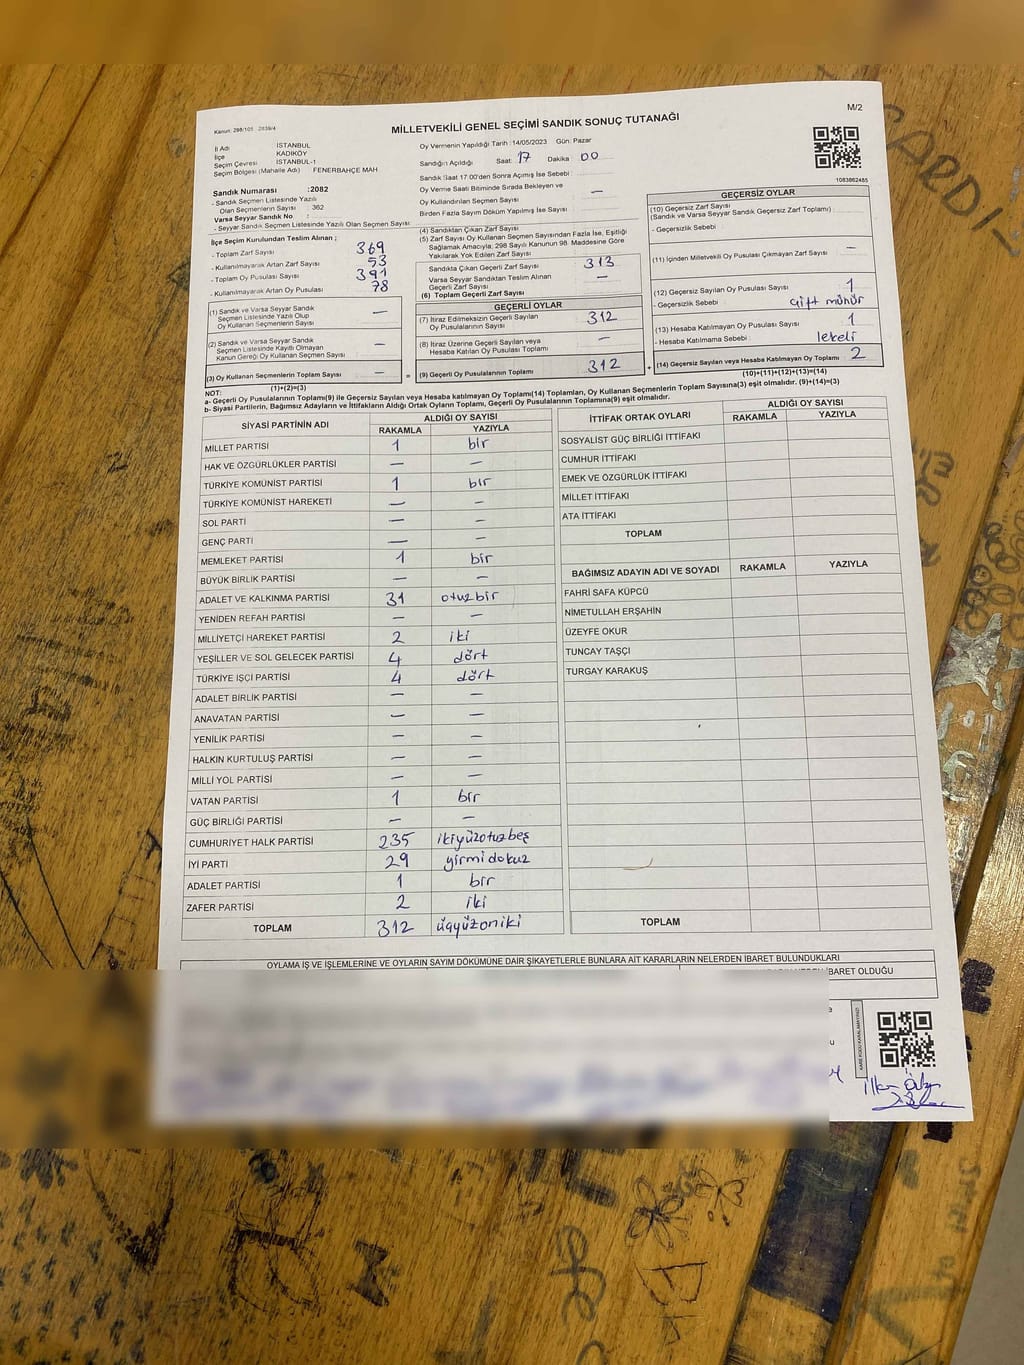 M/2
Kanun: 298/105 2839/4
MİLLETVEKİLİ GENEL SEÇİMİ SANDIK SONUÇ TUTANAĞI
İl Adı İSTANBUL
İlçe KADIKÖY
Seçim Çevresi İSTANBUL-1
Seçim Bölgesi (Mahalle Adı) FENERBAHÇE MAH
Oy Vermenin Yapıldığı Tarih :14/05/2023 Gün: Pazar
Sandığın Açıldığı Saat: 17 Dakika 00
Sandık Saat 17:00'den Sonra Açımış İse Sebebi :
Oy Verme Saati Bitiminde Sırada Bekleyen ve
Oy Kullandırılan Seçmen Sayısı —
Birden Fazla Sayım Döküm Yapılmış İse Sayısı :
1083862485
Sandık Numarası :2082
- Sandık Seçmen Listesinde Yazılı
Olan Seçmenlerin Sayısı : 362
Varsa Seyyar Sandık No :
- Seyyar Sandık Seçmen Listesinde Yazılı Olan Seçmen Sayısı:
İlçe Seçim Kurulundan Teslim Alınan ;
- Toplam Zarf Sayısı 369
- Kullanılmayarak Artan Zarf Sayısı 53
- Toplam Oy Pusulası Sayısı 391
- Kullanılmayarak Artan Oy Pusulası 78
(1) Sandık ve Varsa Seyyar Sandık
Seçmen Listesinde Yazılı Olup
Oy Kullanan Seçmenlerin Sayısı : —
(2) Sandık ve Varsa Seyyar Sandık
Seçmen Listesinde Kayıtlı Olmayan
Kanun Gereği Oy Kullanan Seçmen Sayısı : —
(3) Oy Kullanan Seçmenlerin Toplam Sayısı : —
(1)+(2)=(3)
(4) Sandıktan Çıkan Zarf Sayısı
(5) Zarf Sayısı Oy Kullanan Seçmen Sayısından Fazla İse, Eşitliği
Sağlamak Amacıyla; 298 Sayılı Kanunun 98. Maddesine Göre
Yakılarak Yok Edilen Zarf Sayısı :
Sandıkta Çıkan Geçerli Zarf Sayısı 313
Varsa Seyyar Sandıktan Teslim Alınan
Geçerli Zarf Sayısı —
(6) Toplam Geçerli Zarf Sayısı :
GEÇERLİ OYLAR
(7) İtiraz Edilmeksizin Geçerli Sayılan
Oy Pusulalarının Sayısı : 312
(8) İtiraz Üzerine Geçerli Sayılan veya
Hesaba Katılan Oy Pusulası Toplamı : —
= (9) Geçerli Oy Pusulalarının Toplamı : 312
GEÇERSİZ OYLAR
(10) Geçersiz Zarf Sayısı
(Sandık ve Varsa Seyyar Sandık Geçersiz Zarf Toplamı) :
- Geçersizlik Sebebi :
(11) İçinden Milletvekili Oy Pusulası Çıkmayan Zarf Sayısı : —
(12) Geçersiz Sayılan Oy Pusulası Sayısı : 1
- Geçersizlik Sebebi : çift mühür
(13) Hesaba Katılmayan Oy Pusulası Sayısı : 1
- Hesaba Katılmama Sebebi : lekeli
+ (14) Geçersiz Sayılan veya Hesaba Katılmayan Oy Toplamı : 2
(10)+(11)+(12)+(13)=(14)
NOT:
a- Geçerli Oy Pusulalarının Toplamı(9) ile Geçersiz Sayılan veya Hesaba Katılmayan Oy Toplamı(14) Toplamları, Oy Kullanan Seçmenlerin Toplam Sayısına(3) eşit olmalıdır. (9)+(14)=(3)
b- Siyasi Partilerin, Bağımsız Adayların ve İttifakların Aldığı Ortak Oyların Toplamı, Geçerli Oy Pusulalarının Toplamına(9) eşit olmalıdır.
SİYASİ PARTİNİN ADI ALDIĞI OY SAYISI
RAKAMLA YAZIYLA
MİLLET PARTİSİ 1 bir
HAK VE ÖZGÜRLÜKLER PARTİSİ — —
TÜRKİYE KOMÜNİST PARTİSİ 1 bir
TÜRKİYE KOMÜNİST HAREKETİ — —
SOL PARTİ — —
GENÇ PARTİ — —
MEMLEKET PARTİSİ 1 bir
BÜYÜK BİRLİK PARTİSİ — —
ADALET VE KALKINMA PARTİSİ 31 otuzbir
YENİDEN REFAH PARTİSİ — —
MİLLİYETÇİ HAREKET PARTİSİ 2 iki
YEŞİLLER VE SOL GELECEK PARTİSİ 4 dört
TÜRKİYE İŞÇİ PARTİSİ 4 dört
ADALET BİRLİK PARTİSİ — —
ANAVATAN PARTİSİ — —
YENİLİK PARTİSİ — —
HALKIN KURTULUŞ PARTİSİ — —
MİLLİ YOL PARTİSİ — —
VATAN PARTİSİ 1 bir
GÜÇ BİRLİĞİ PARTİSİ — —
CUMHURİYET HALK PARTİSİ 235 ikiyüzotuzbeş
İYİ PARTİ 29 yirmidokuz
ADALET PARTİSİ 1 bir
ZAFER PARTİSİ 2 iki
TOPLAM 312 üçyüzoniki
İTTİFAK ORTAK OYLARI ALDIĞI OY SAYISI
RAKAMLA YAZIYLA
SOSYALİST GÜÇ BİRLİĞİ İTTİFAKI
CUMHUR İTTİFAKI
EMEK VE ÖZGÜRLÜK İTTİFAKI
MİLLET İTTİFAKI
ATA İTTİFAKI
TOPLAM
BAĞIMSIZ ADAYIN ADI VE SOYADI RAKAMLA YAZIYLA
FAHRİ SAFA KÜPCÜ
NİMETULLAH ERŞAHİN
ÜZEYFE OKUR
TUNCAY TAŞÇI
TURGAY KARAKUŞ
TOPLAM
OYLAMA İŞ VE İŞLEMLERİNE VE OYLARIN SAYIM DÖKÜMÜNE DAİR ŞİKAYETLERLE BUNLARA AİT KARARLARIN NELERDEN İBARET BULUNDUKLARI
İBARET OLDUĞU